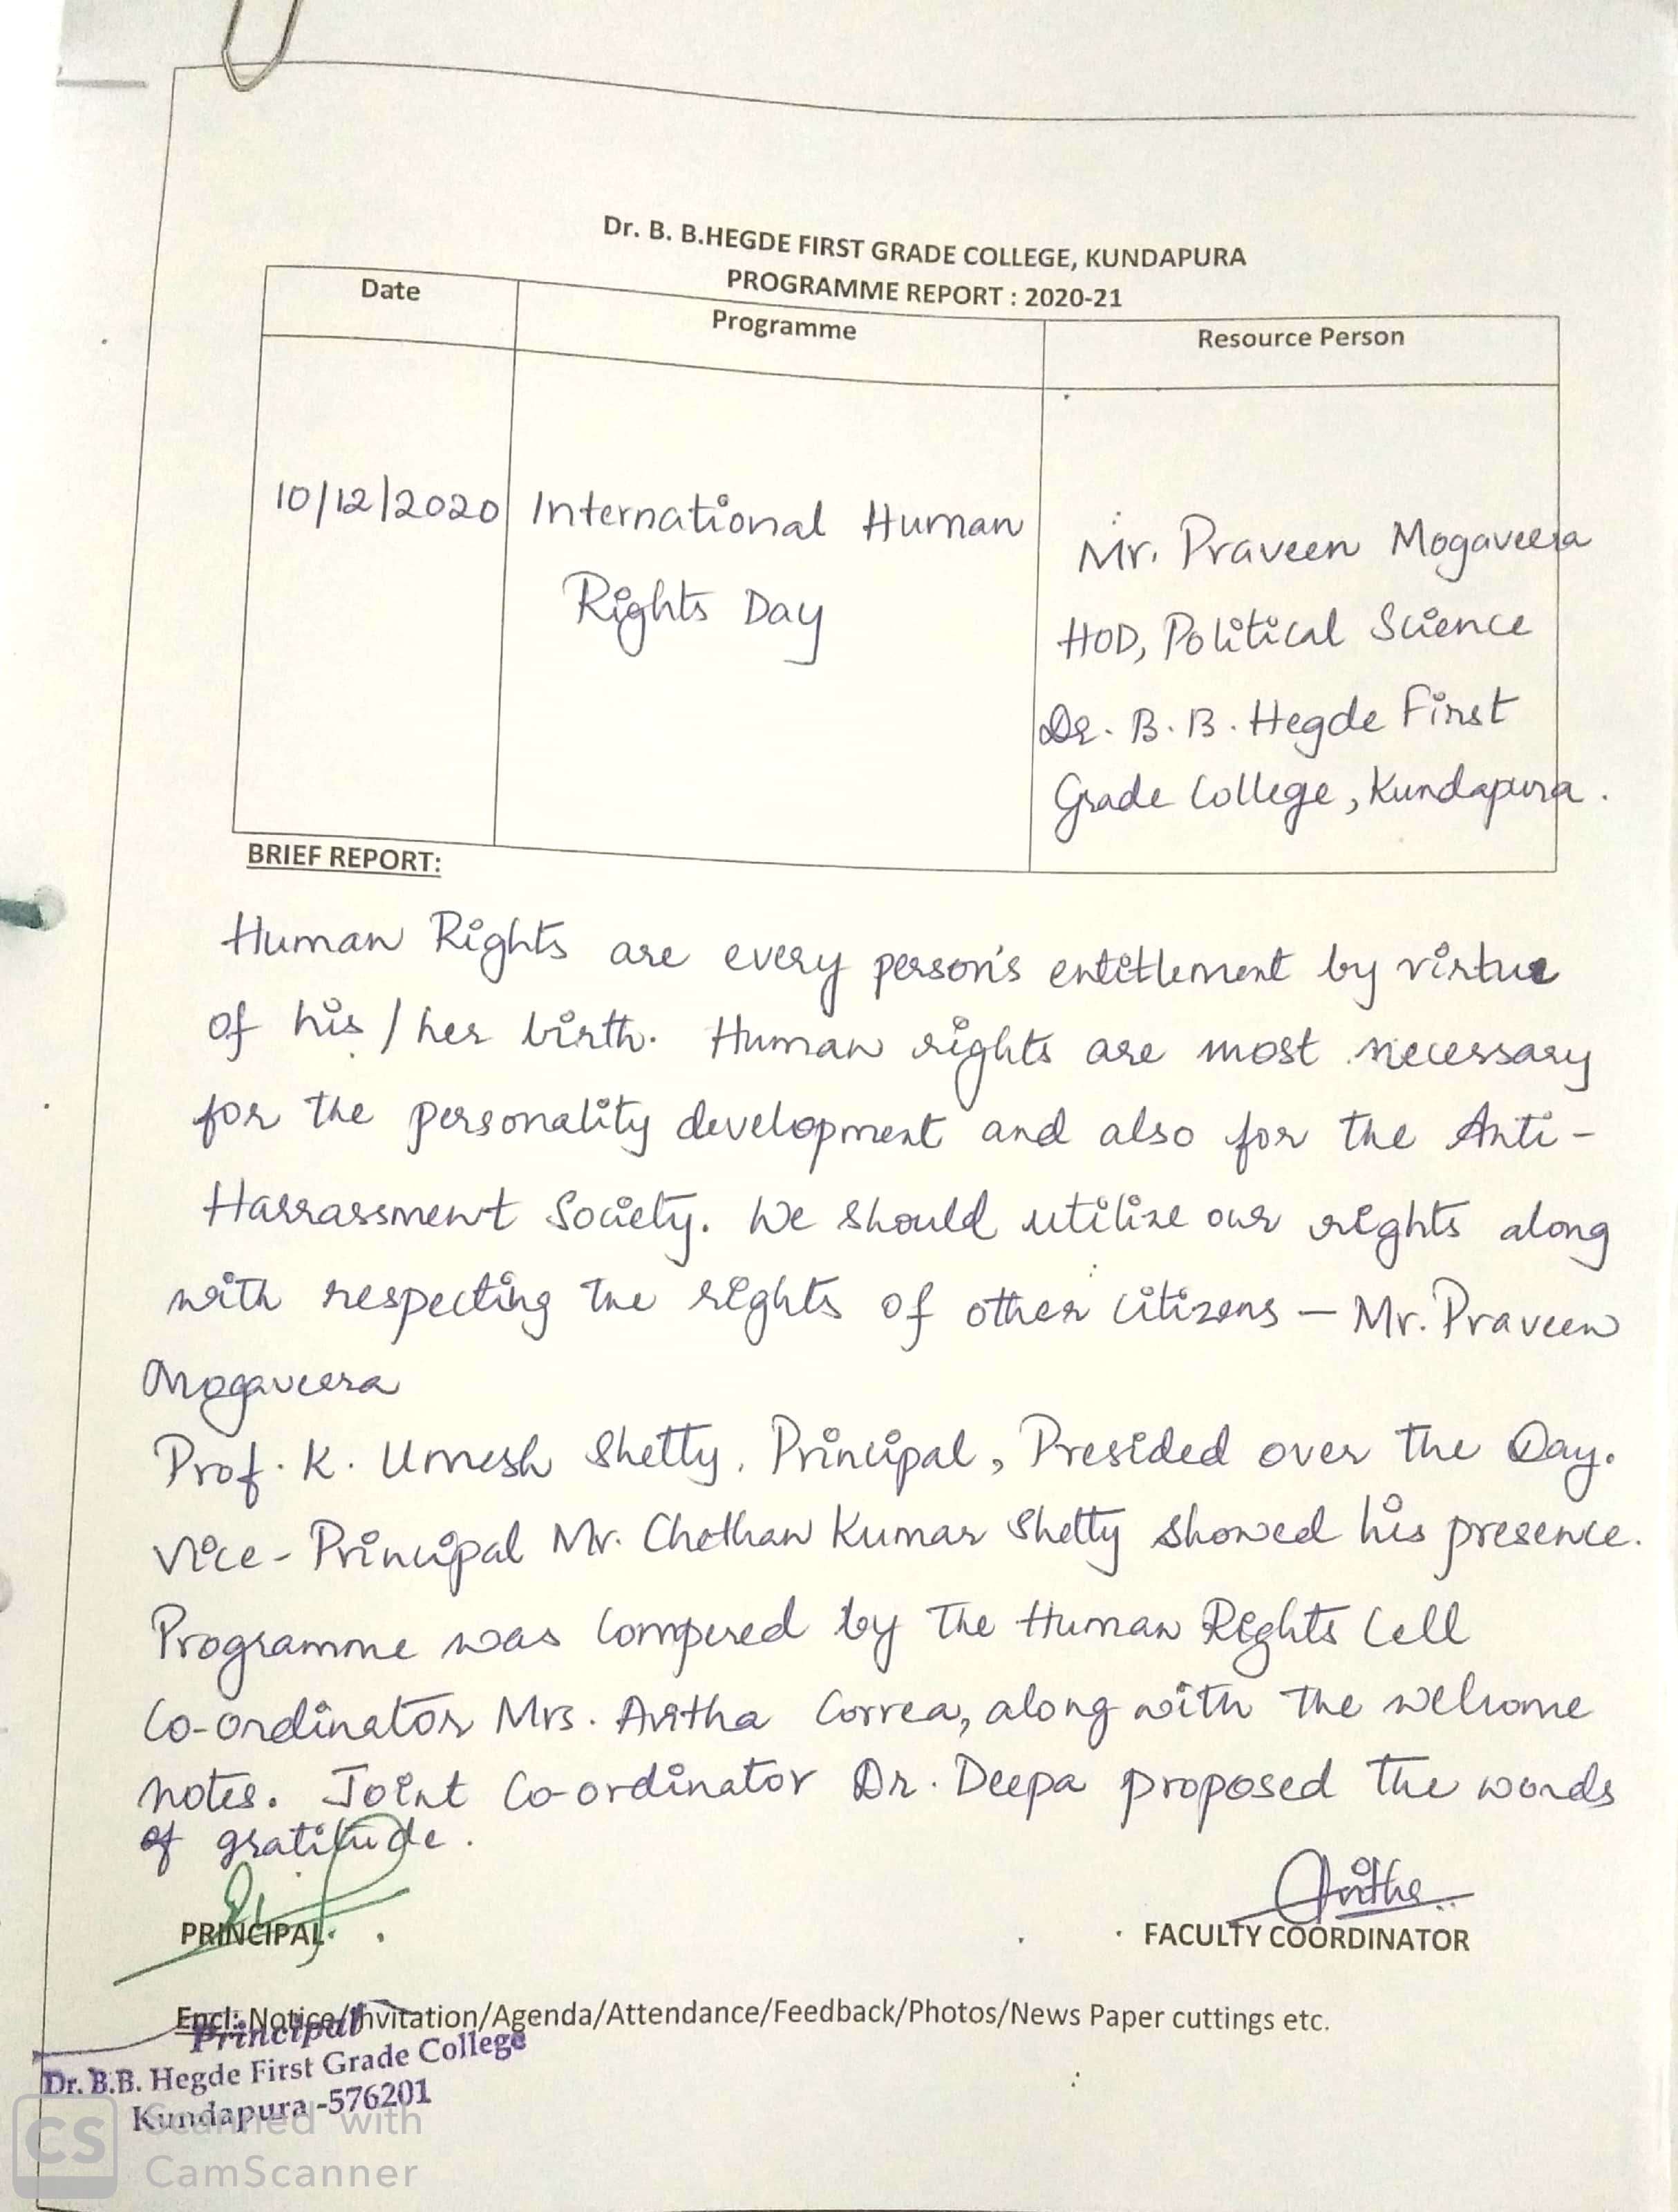 Dr. B. B.HEGDE FIRST GRADE COLLEGE, KUNDAPURA
PROGRAMME REPORT : 2020-21
Date
Programme
Resource Person
10/12/2020
International Human
Rights Day
Mr. Praveen Mogaveera
HOD, Political Science
Dr. B. B. Hegde First
Grade College, Kundapura.
BRIEF REPORT:
Human Rights are every person's entitlement by virtue
of his / her birth. Human rights are most necessary
for the personality development and also for the Anti-
Harrassment Society. We should utilize our rights along
with respecting the rights of other citizens – Mr. Praveen
Mogaveera
Prof. K. Umesh Shetty, Principal, Presided over the Day.
Vice-Principal Mr. Chethan Kumar Shetty showed his presence.
Programme was compered by the Human Rights Cell
Co-ordinator Mrs. Avitha Correa, along with the welcome
notes. Joint Co-ordinator Dr. Deepa proposed the words
of gratitude.
Avitha
PRINCIPAL
FACULTY COORDINATOR
Encl: Notice/Invitation/Agenda/Attendance/Feedback/Photos/News Paper cuttings etc.
Principal
Dr. B.B. Hegde First Grade College
Kundapura -576201
CS
Scanned with
CamScanner